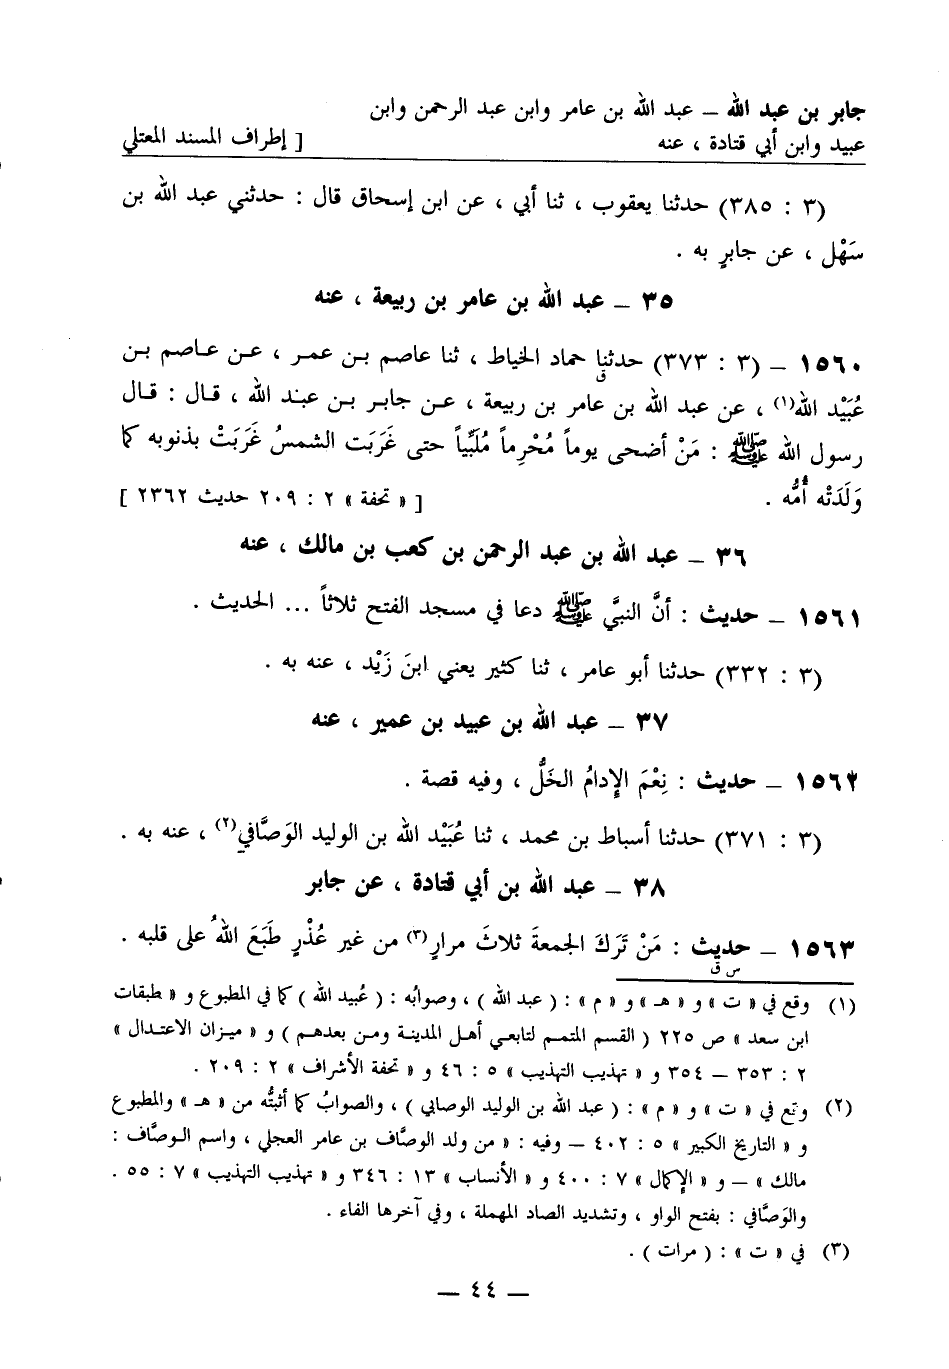 جابر بن عبد الله ــ عبد الله بن عامر وابن عبد الرحمن وابن
عبيد وابن أبي قتادة ، عنه [ إطراف المسند المعتلي
(٣ : ٣٨٥) حدثنا يعقوب ، ثنا أبي ، عن ابن إسحاق قال : حدثني عبد الله بن
سَهْل ، عن جابرٍ به .
٣٥ ــ عبد الله بن عامر بن ربيعة ، عنه
١٥٦٠ ــ (٣ : ٣٧٣) حدثنا حماد الخياط ، ثنا عاصم بن عمر ، عن عاصم بن
ق
عُبَيْد الله(١) ، عن عبد الله بن عامر بن ربيعة ، عن جابر بن عبد الله ، قال : قال
رسول الله ﷺ : مَنْ أضحى يوماً مُحْرِماً مُلَبِّياً حتى غَرَبَت الشمسُ غَرَبَتْ بذنوبه كما
وَلَدَتْه أُمُّه . [ « تحفة » ٢ : ٢٠٩ حديث ٢٣٦٢ ]
٣٦ ــ عبد الله بن عبد الرحمن بن كعب بن مالك ، عنه
١٥٦١ ــ حديث : أنَّ النبيَّ ﷺ دعا في مسجد الفتح ثلاثاً ... الحديث .
(٣ : ٣٣٢) حدثنا أبو عامر ، ثنا كثير يعني ابنَ زَيْد ، عنه به .
٣٧ ــ عبد الله بن عبيد بن عمير ، عنه
١٥٦٢ ــ حديث : نِعْمَ الإدامُ الخَلُّ ، وفيه قصة .
(٣ : ٣٧١) حدثنا أسباط بن محمد ، ثنا عُبَيْد الله بن الوليد الوَصَّافي(٢) ، عنه به .
٣٨ ــ عبد الله بن أبي قتادة ، عن جابر
١٥٦٣ ــ حديث : مَنْ تَرَكَ الجمعةَ ثلاثَ مرارٍ(٣) من غير عُذْرٍ طَبَعَ اللهُ على قلبه .
س ق
(١) وقع في « ت » و « هـ » و « م » : ( عبد الله ) ، وصوابُه : ( عُبيد الله ) كما في المطبوع و « طبقات
ابن سعد » ص ٢٢٥ ( القسم المتمم لتابعي أهل المدينة ومن بعدهم ) و « ميزان الاعتدال »
٢ : ٣٥٣ ــ ٣٥٤ و « تهذيب التهذيب » ٥ : ٤٦ و « تحفة الأشراف » ٢ : ٢٠٩ .
(٢) وقع في « ت » و « م » : ( عبد الله بن الوليد الوصابي ) ، والصوابُ كما أثبتُّه من « هـ » والمطبوع
و « التاريخ الكبير » ٥ : ٤٠٢ ــ وفيه : « من ولد الوصَّاف بن عامر العجلي ، واسم الوصَّاف :
مالك » ــ و « الإكمال » ٧ : ٤٠٠ و « الأنساب » ١٣ : ٣٤٦ و « تهذيب التهذيب » ٧ : ٥٥ .
والوَصَّافي : بفتح الواو ، وتشديد الصاد المهملة ، وفي آخرها الفاء .
(٣) في « ت » : ( مرات ) .
ــ ٤٤ ــ